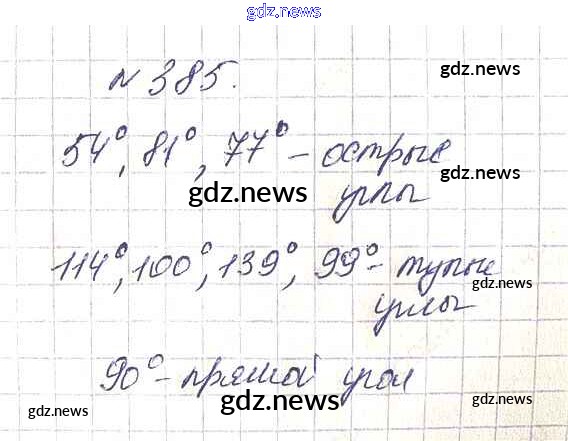 gdz.news
№ 385.
gdz.news
54°, 81°, 77° – острые
gdz.news
gdz.news
углы
114°, 100°, 139°, 99° – тупые
gdz.news
углы
90° – прямой угол
gdz.news
gdz.news
gdz.news